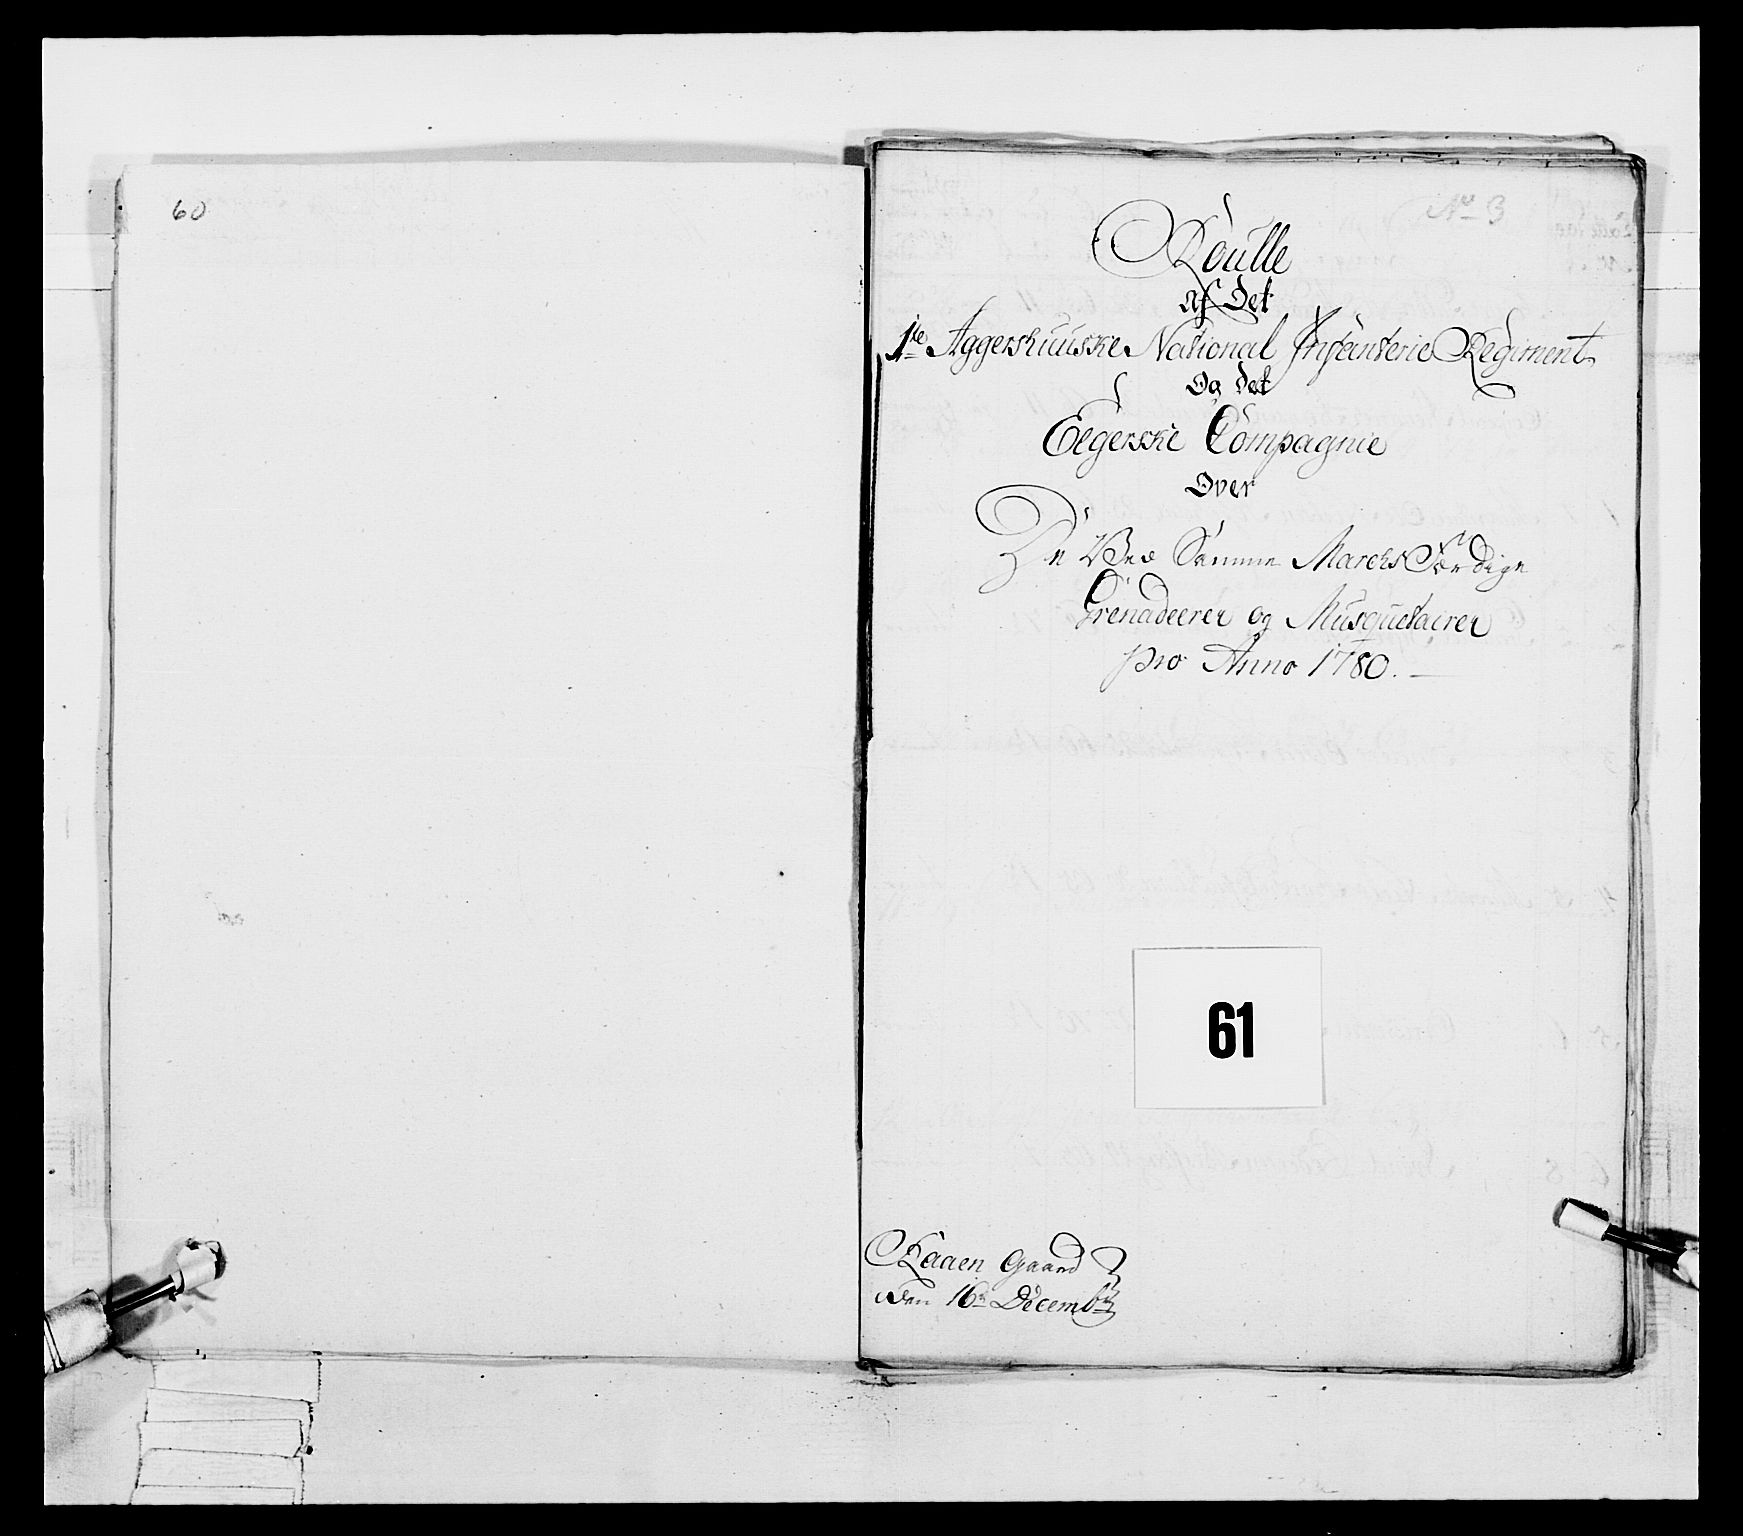 60
No 3
Roulle
af Det
1te Aggershuuske National Infanterie Regiment
Og det
Eegerske Compagnie
Over
De Ved Samme Marchs Færdige
Grenadeerer og Musquetairer
pro Anno 1780.
61
Kaaen Gaard
den 16de Decembr